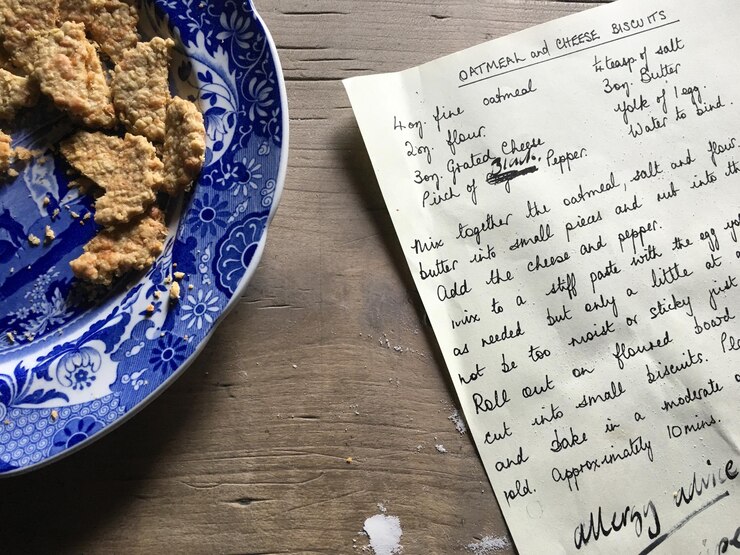 OATMEAL and CHEESE BISCUITS
4oz. fine oatmeal
2oz. flour.
3oz. Grated Cheese
Pinch of Pepper.
¼ teasp. of salt
3oz. Butter
yolk of 1 egg.
Water to bind.
Mix together the oatmeal, salt and flour.
butter into small pieces and rub into th
Add the cheese and pepper.
mix to a stiff paste with the egg yo
as needed but only a little at a
not be too moist or sticky just
Roll out on floured board
cut into small biscuits. Pl
and bake in a moderate
gold. Approximately 10 mins.
allergy advice